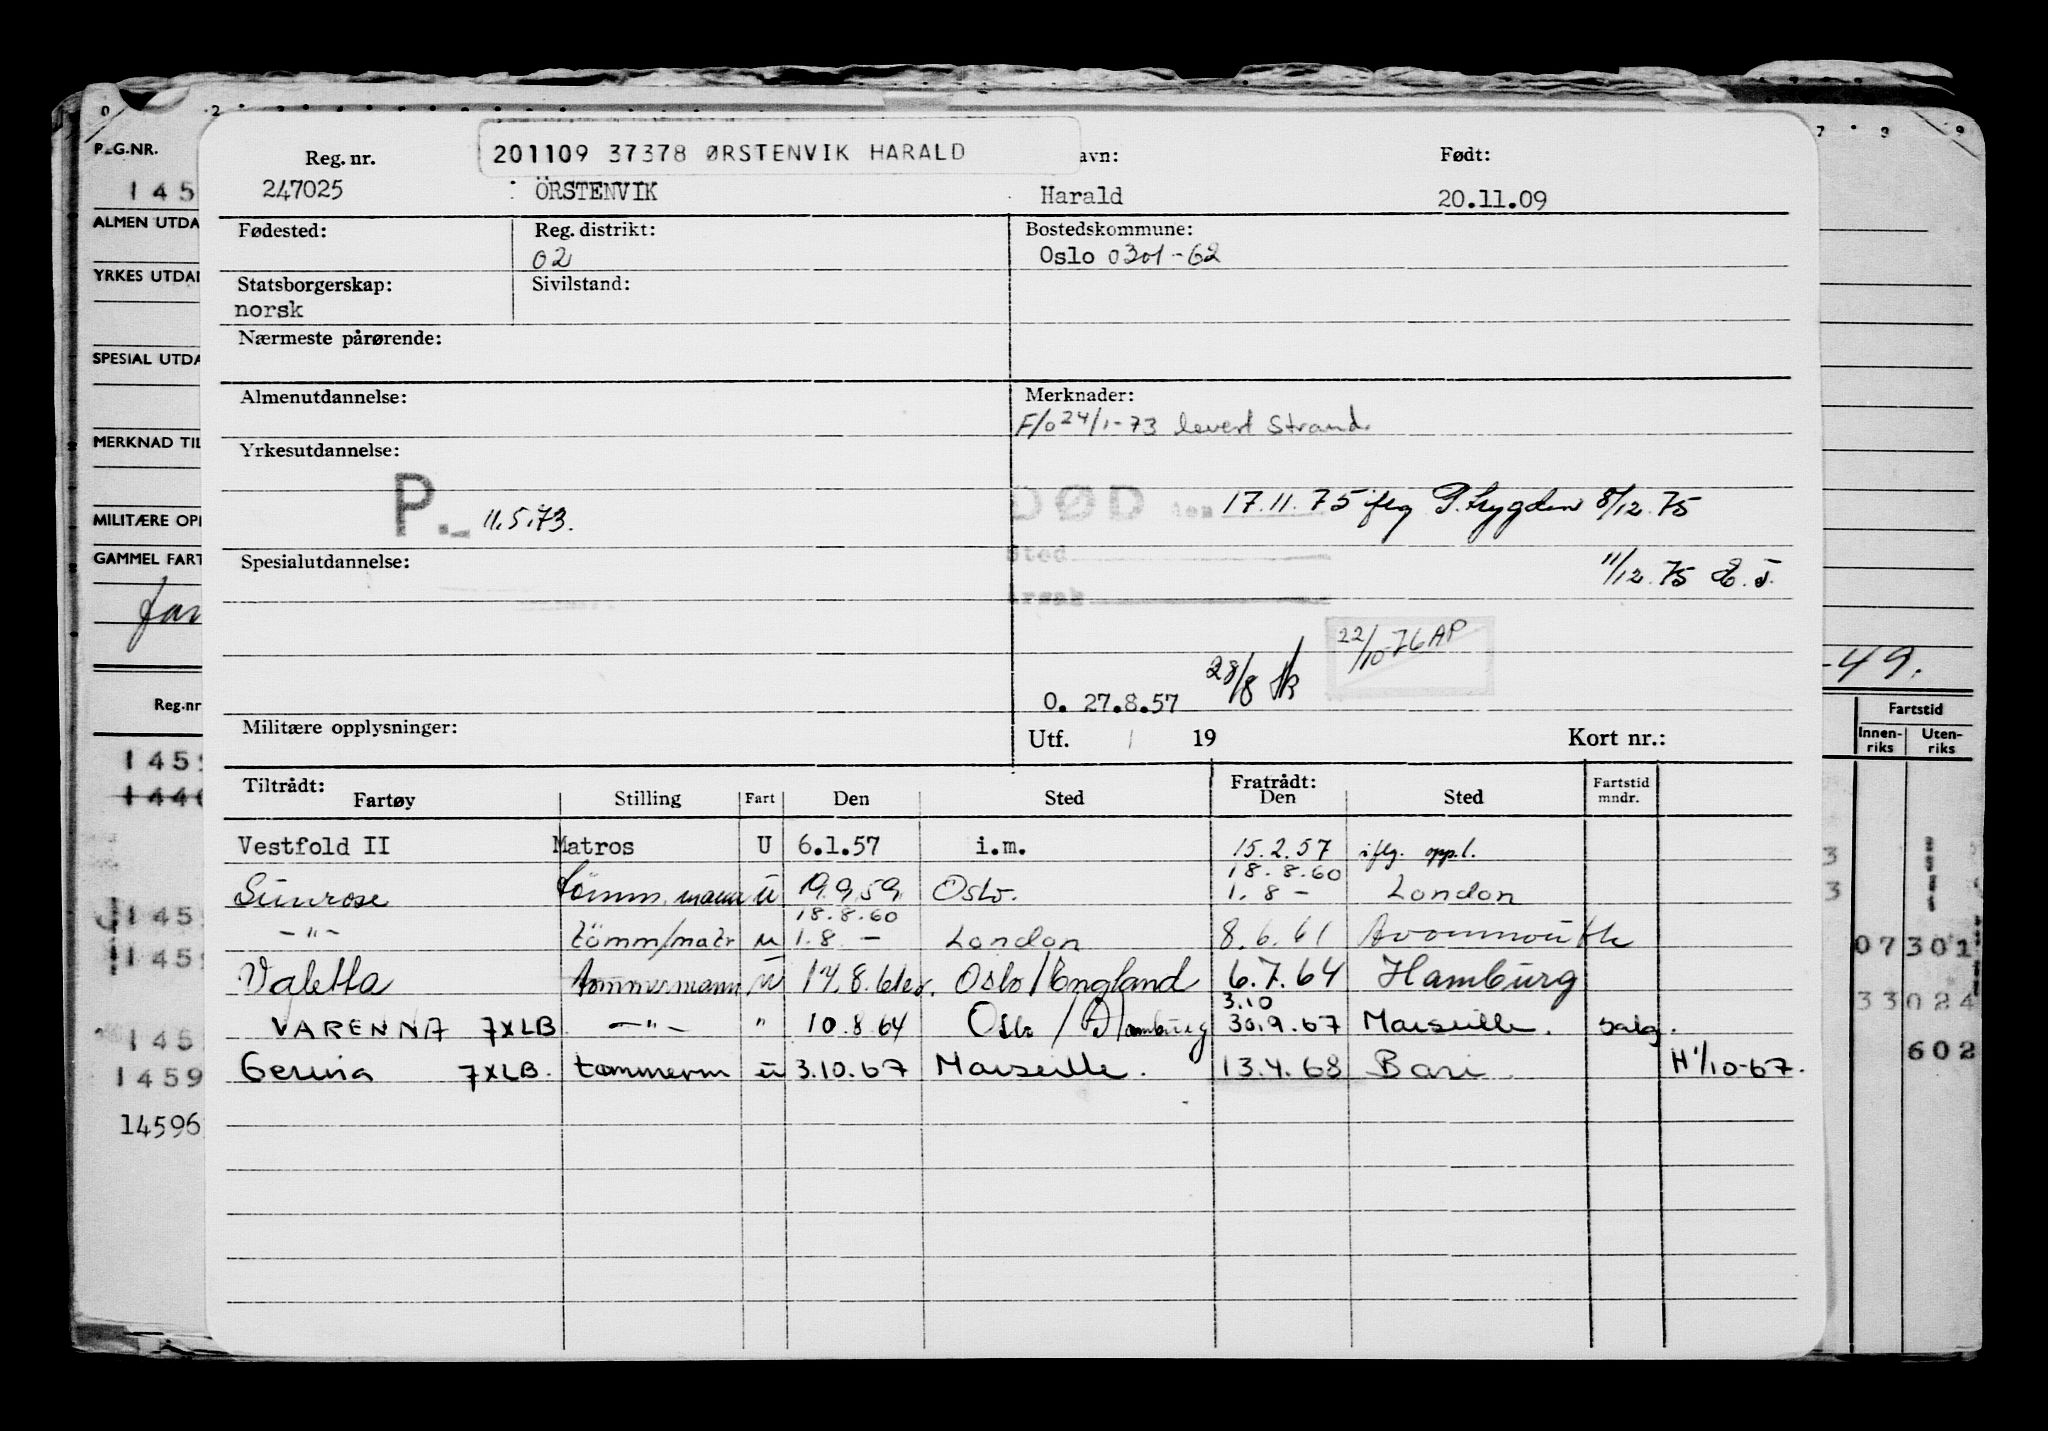 0 2
7 8 9
REG.NR.
201109 37378 ØRSTENVIK HARALD
Reg. nr. avn: Født:
145 247025 ÖRSTENVIK Harald 20.11.09
ALMEN UTDA
Fødested: Reg. distrikt: Bostedskommune:
02 Oslo 0301-62
YRKES UTDA
Statsborgerskap: Sivilstand:
norsk
Nærmeste pårørende:
SPESIAL UTDA
Almenutdannelse: Merknader:
F/o 24/1-73 levert Strand.
MERKNAD TIL
Yrkesutdannelse:
P.- 11.5.73.
DØD den 17.11.75 iflg P.trygden 8/12.75
MILITÆRE OPP
GAMMEL FART
Spesialutdannelse: Sted 11/12.75 E.J.
Årsak
for
22/10-76 AP
28/8
-49.
O. 27.8.57
Reg.nr
Militære opplysninger: Utf. / 19 Kort nr.:
Fartstid
Innenriks Utenriks
Tiltrådt: Fratrådt:
Fartøy Stilling Fart Den Sted Den Sted Fartstid mndr.
Vestfold II Matros U 6.1.57 i.m. 15.2.57 iflg. oppl.
18.8.60
Sunrose tömm.mann u 19.9.59 Oslo. 1.8 - London
18.8.60
-"- tömm/matr u 1.8 - London 8.6.61 Avonmouth
Valetta tømmermann u 14.8.61 Oslo/England 6.7.64 Hamburg
3.10
VARENNA 7XLB -"- " 10.8.64 Oslo/Hamburg 30.9.67 Marseille. salg.
Gerina 7XLB. tømmerm u 3.10.67 Marseille. 13.4.68 Bari. H1/10-67.
1459
1440
145
145
145
1459
14596
3
3
07 301
33 024
602